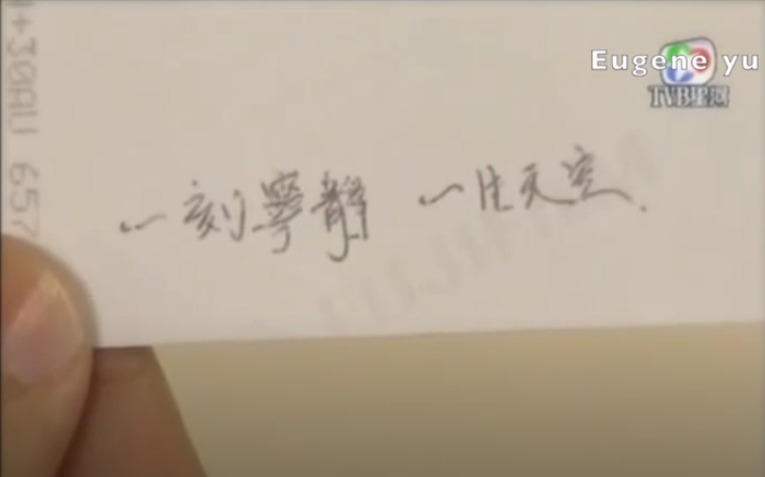 Eugene yu
TVB星河
+30AU 657
一刻寧靜 一片天空.